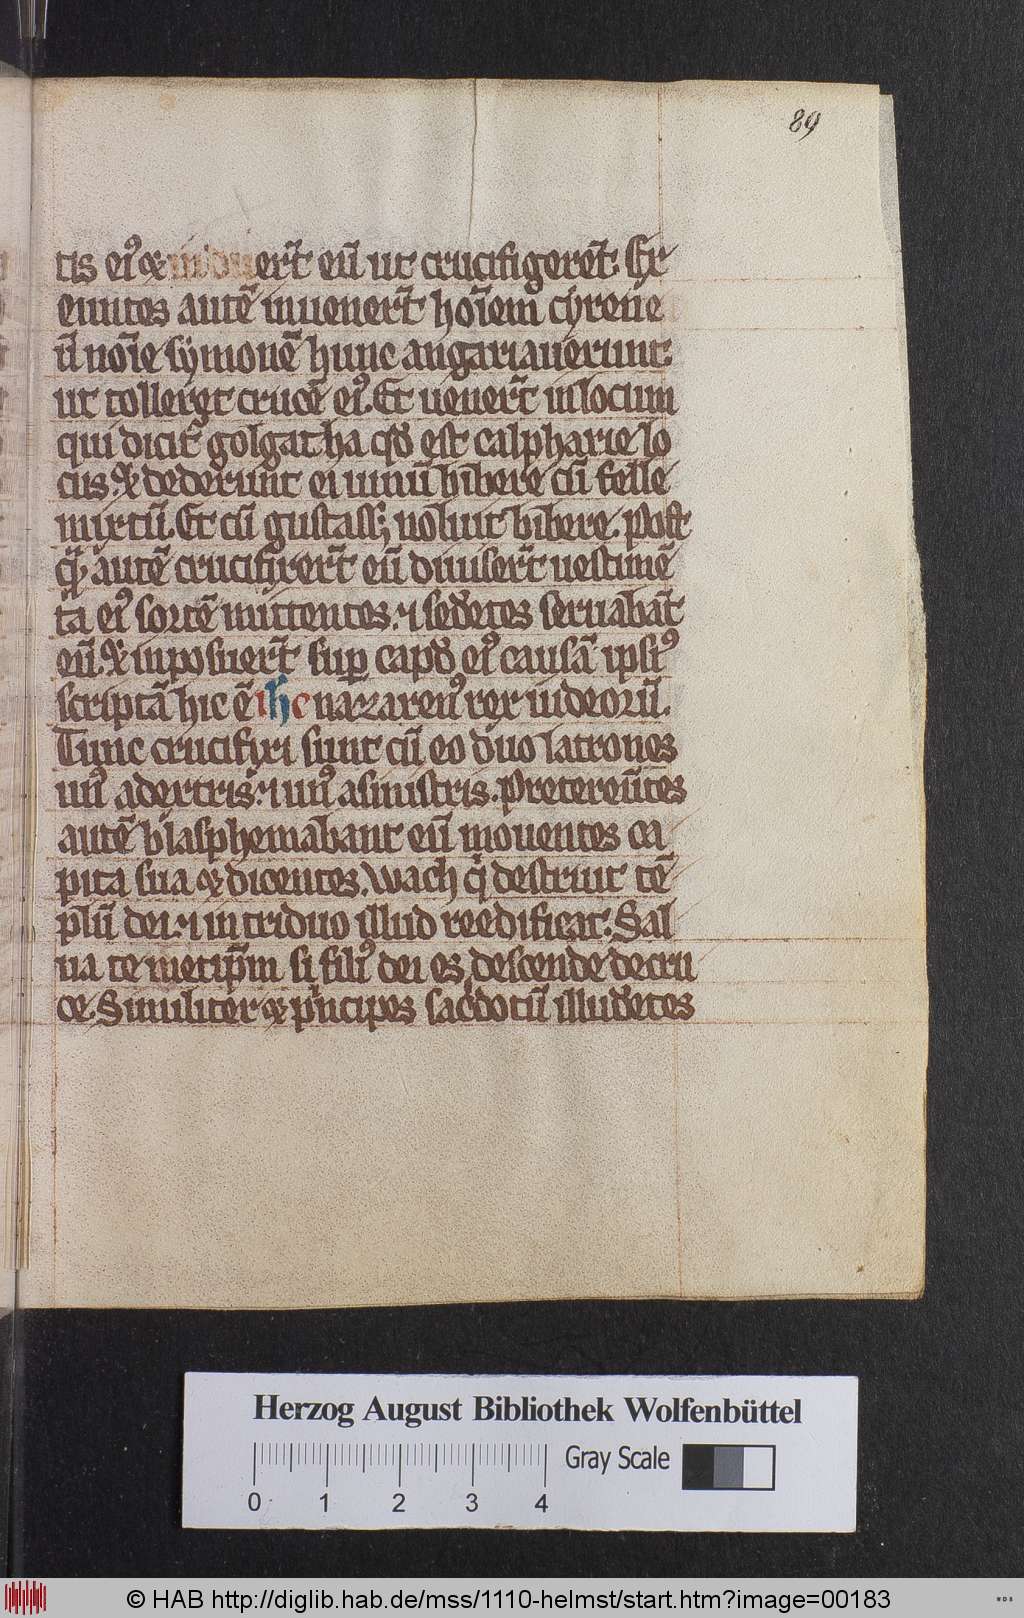 89
tis eiꝰ ⁊ induert̄ eū ut crucifigeret̄. Ex
euntes autē inuenert̄ hoīem cyrene
ū noīe symonē hunc angariauerunt:
ut tolleret crucē eiꝰ. Et uenert̄ in locum
qui dicit̄ golgatha qd̄ est calpharie lo
cus. ⁊ dederunt ei uinū bibere cū felle
mixtū. Et cū gustass; noluit bibere. Post
q̄ autē crucifixert̄ eū diuisert̄ uestimē
ta eiꝰ sortē mittentes. ⁊ sedētes seruabāt
eū. ⁊ inposuert̄ sup̄ capd̄ eiꝰ causā ipsiꝰ
scriptā hic ē ihc nazarenꝰ rex iudeorū.
Tunc crucifixi sunt cū eo duo latrones
unꝰ a dextris. ⁊ unꝰ a sinistris. Pretereūtes
autē blasphemabant eū mouentes ca
pita sua ⁊ dicentes. Wach q̄ destruit tē
plū dei. ⁊ in triduo illud reedificat. Sal
ua te metip̄m si filiꝰ dei es descende de cru
ce. Similiter ⁊ pⁱncipes sacdotū illudētes
Herzog August Bibliothek Wolfenbüttel
Gray Scale
0 1 2 3 4
© HAB http://diglib.hab.de/mss/1110-helmst/start.htm?image=00183